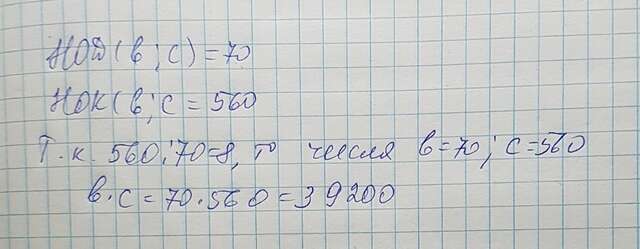 НОД(в;с)=70
НОК(в;с = 560
Т.к. 560:70=8, то числа в=70; с=560
в·с=70·560=39200